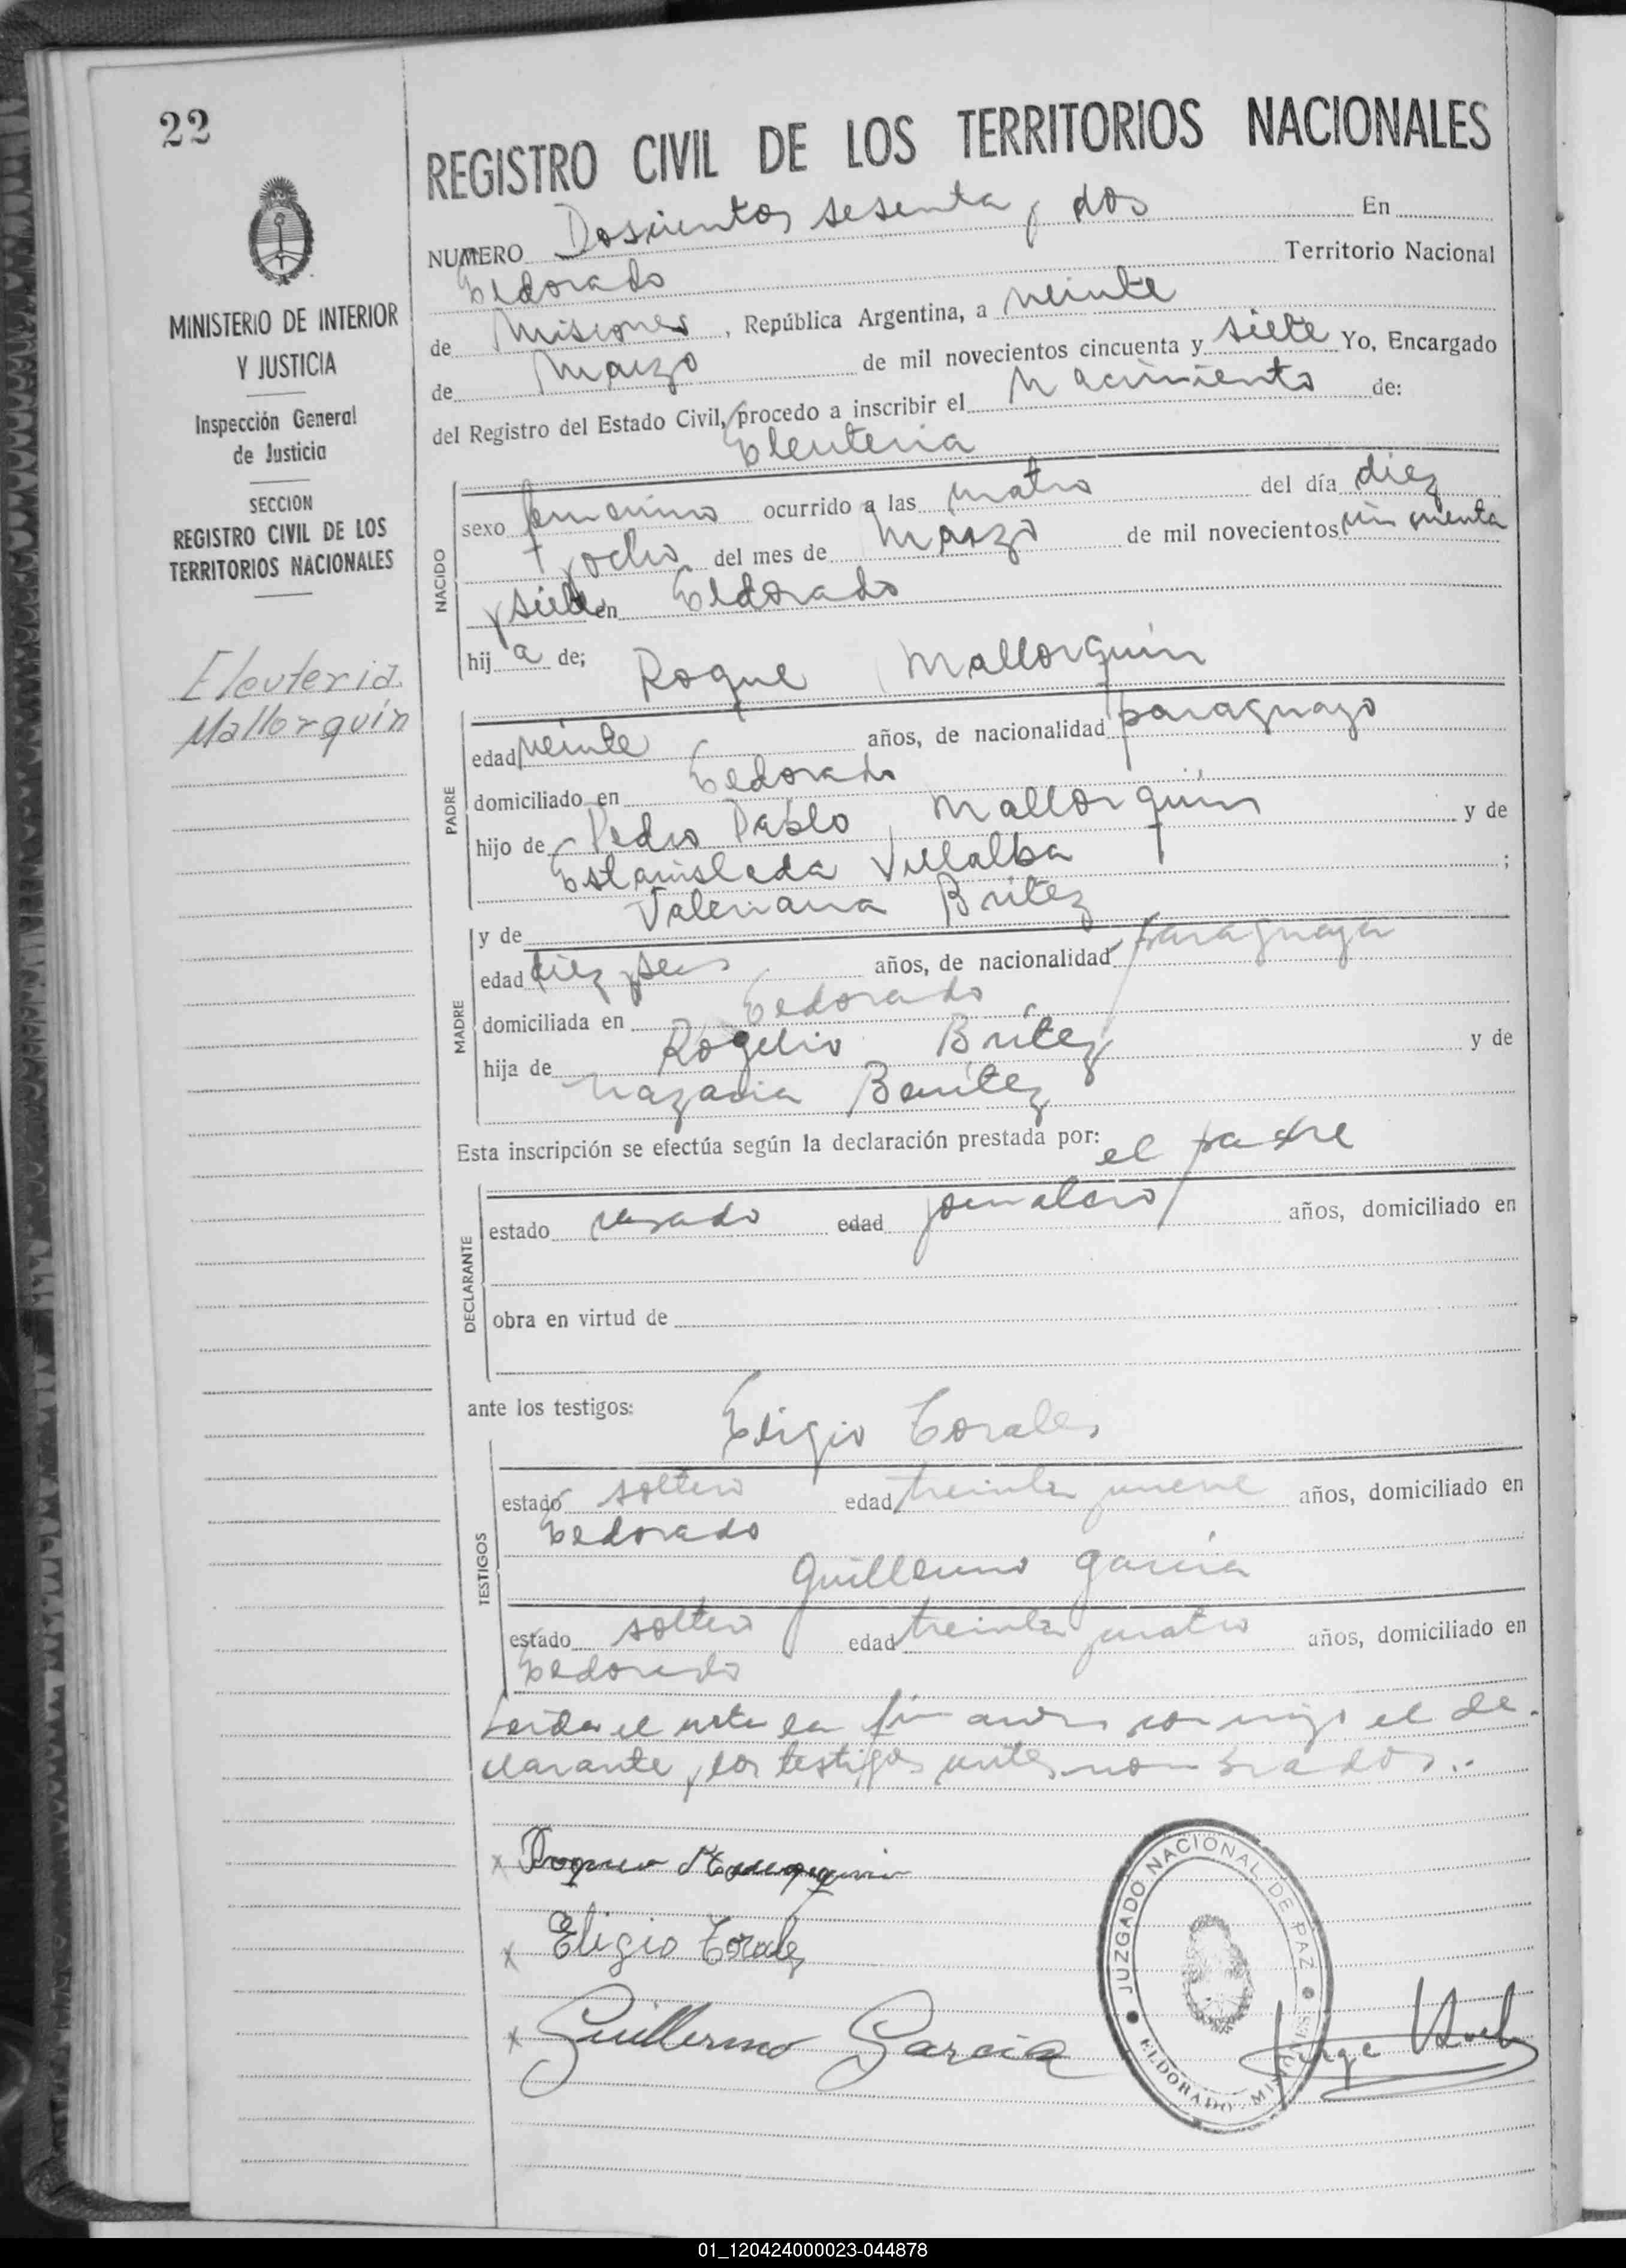 22
REGISTRO CIVIL DE LOS TERRITORIOS NACIONALES
MINISTERIO DE INTERIOR
Y JUSTICIA
Inspección General
de Justicia
SECCION
REGISTRO CIVIL DE LOS
TERRITORIOS NACIONALES
Eleuteria
Mallorquín
NUMERO Doscientos sesenta y dos En
Eldorado Territorio Nacional
de Misiones, República Argentina, a veinte
de Marzo de mil novecientos cincuenta y siete Yo, Encargado
del Registro del Estado Civil, procedo a inscribir el Nacimiento de:
Eleuteria
NACIDO
sexo femenino ocurrido a las cuatro del día diez
y ocho del mes de Marzo de mil novecientos cincuenta
y siete en Eldorado
hij a de; Roque Mallorquin
PADRE
edad veinte años, de nacionalidad paraguayo
domiciliado en Eldorado
hijo de Pedro Pablo Mallorquin y de
Estanislada Villalba ;
y de Valeriana Britez
MADRE
edad diez y seis años, de nacionalidad paraguaya
domiciliada en Eldorado
hija de Rogelio Britez y de
Nazaria Benitez
Esta inscripción se efectúa según la declaración prestada por: el padre
DECLARANTE
estado casado edad jornalero años, domiciliado en
obra en virtud de
ante los testigos: Eligio Torales
TESTIGOS
estado soltero edad treinta y nueve años, domiciliado en
Eldorado
Guillermo Garcia
estado soltero edad treinta y cuatro años, domiciliado en
Eldorado
Leida el acta la firmaron conmigo el de-
clarante y los testigos antes nombrados.-
x Roque Mallorquin
x Eligio Torales
x Guillermo Garcia
JUZGADO NACIONAL DE PAZ
ELDORADO - MISIONES
Jorge
01_120424000023-044878